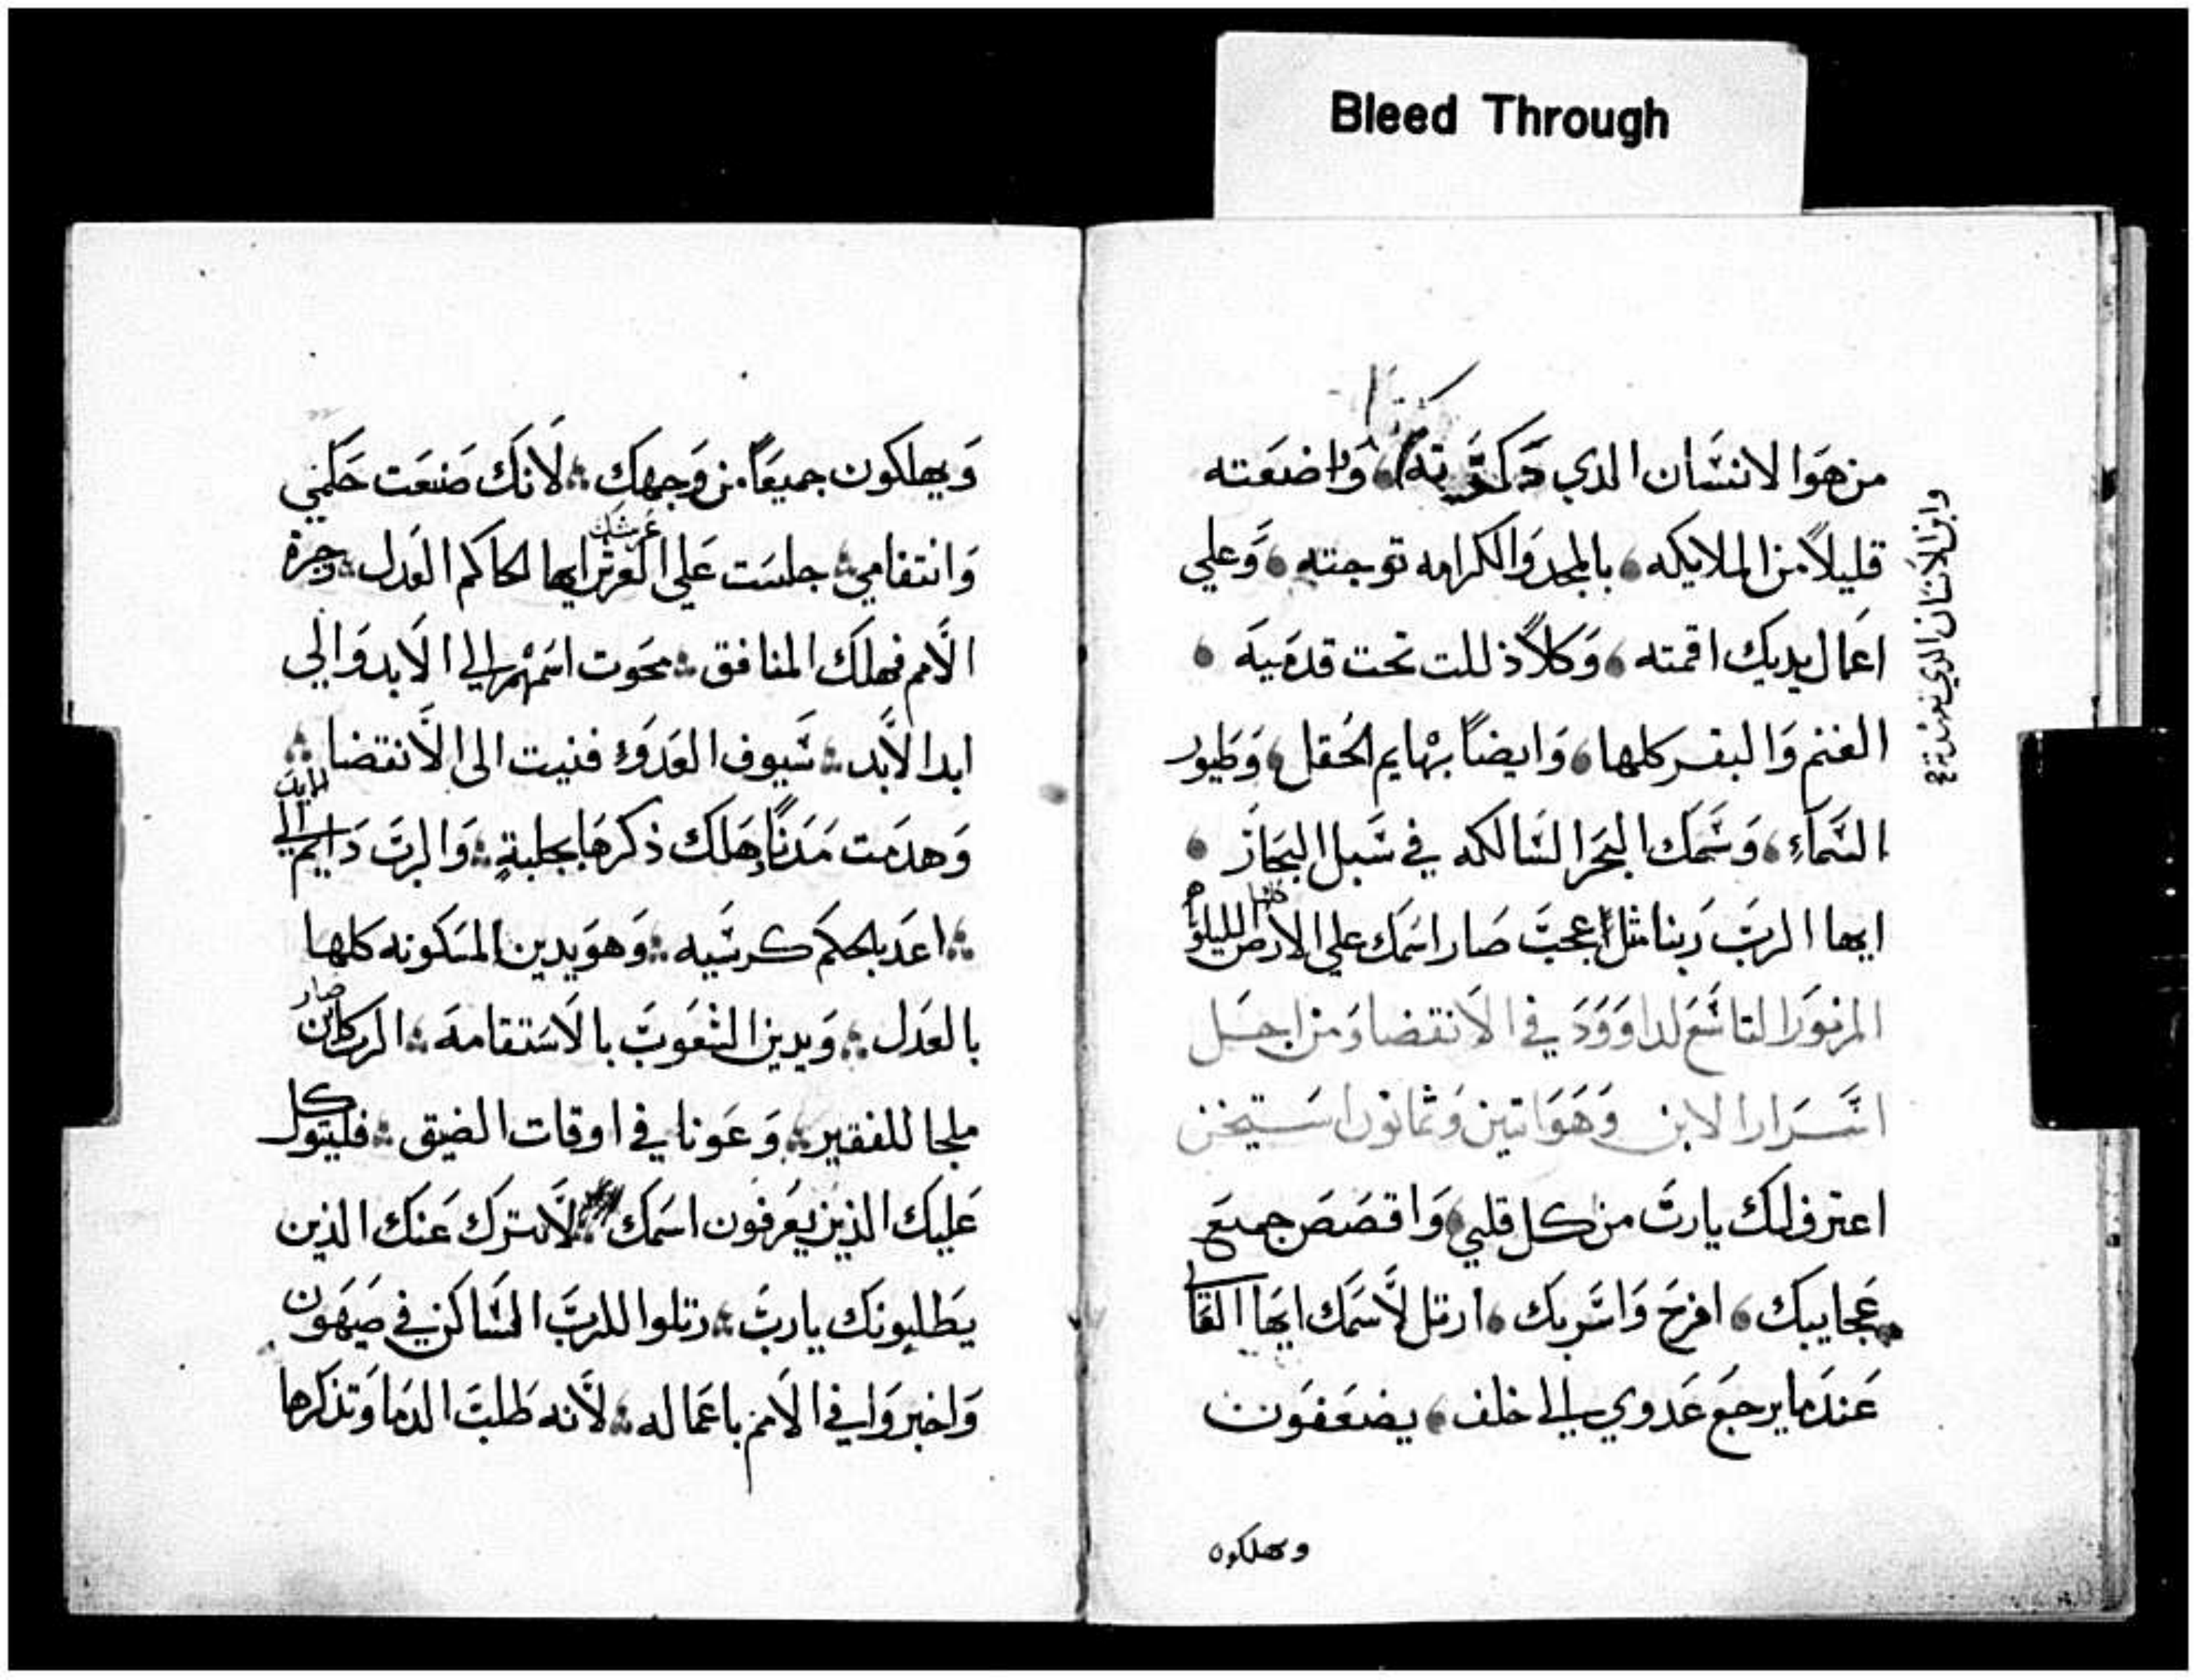 Bleed Through
من هوا الانسان الذي ذكرته واضعته
وابن الانسان الذي تعهدته
قليلاً من الملايكه بالمجد والكرامه توجته وعلي
اعمال يديك اقمته وكلاً ذللت تحت قدميه
الغنم والبقر كلها وايضاً بهايم الحقل وطيور
السماء وسمك البحر السالكه في سبل البحار
ايها الرب ربنا مثل عجب صار اسمك علي الارض كلها الليلويا
المزمور التاسع لداوود في الانقضا ومن اجل
اسرار الابن وهو اتين وثمانون استيخن
اعترف لك يارب من كل قلبي واقصص جميع
عجايبك افرح واسر بك ارتل لاسمك ايها العا
عندما يرجع عدوي الي خلف يضعفون
ويهلكون
ويهلكون جميعاً من وجهك لانك صنعت حكمي
وانتقامي جلست علي العرش ايها الحاكم العدل زجرة
عرشك
الامم فهلك المنافق محوت اسمهم الي الابد والي
ابد الابد سيوف العدو فنيت الى الانقضا
وهدمت مدناً هلك ذكرها بجلبةٍ والرب دايم الي الابد
اعد بلحكم كرسيه وهو يدين المسكونه كلها
بالعدل ويدين الشعوب بالاستقامة الرب كان
صار
ملجا للفقير وعونا في اوقات الضيق فليتوكل
عليك الذين يعرفون اسمك لانك لا تترك عنك الذين
يطلبونك يارب رتلوا للرب الساكن في صهيون
واخبروا في الامم باعماله لانه طلب الدما وتذكرها